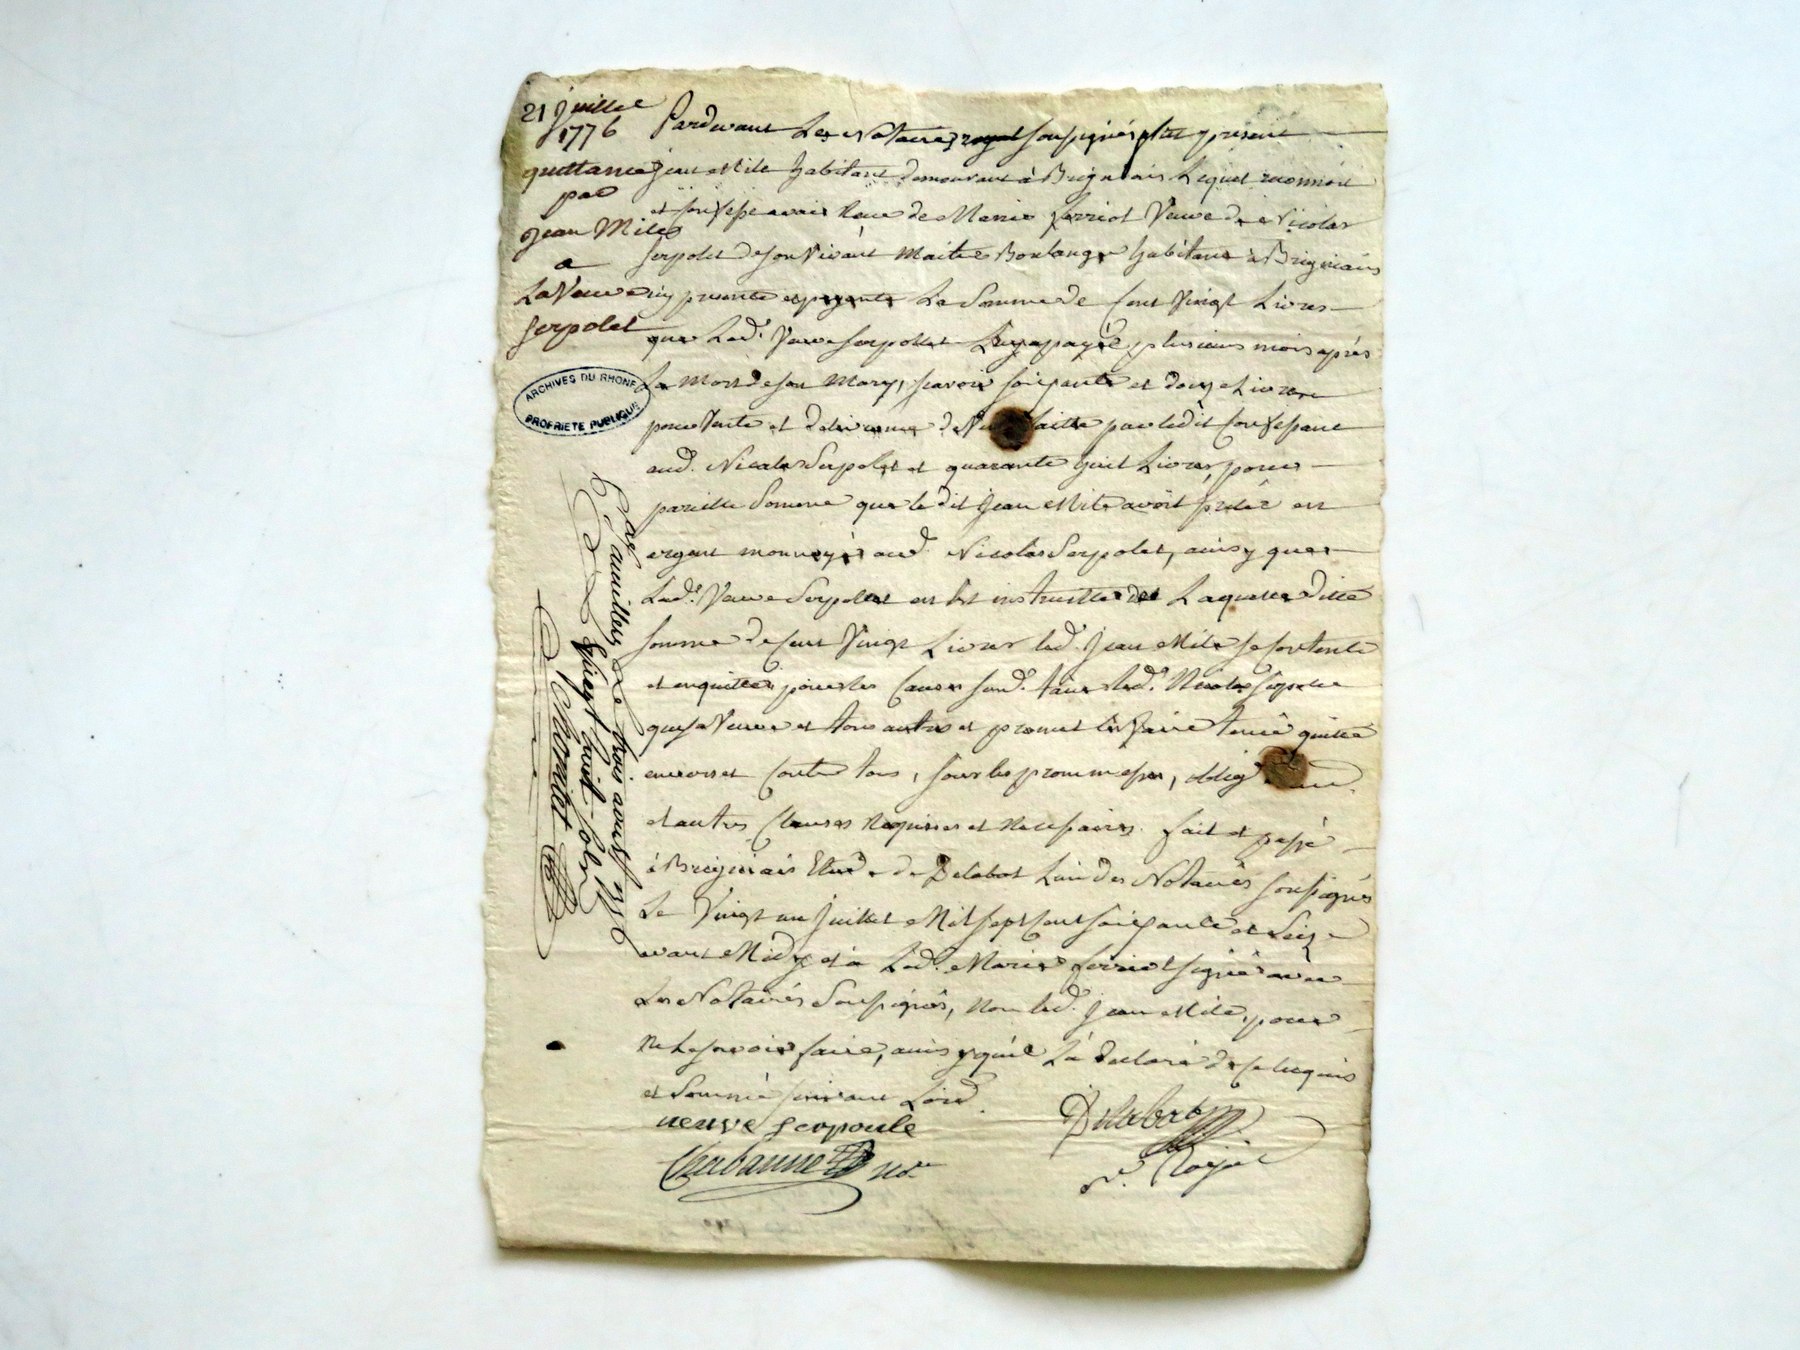 21 Juillet
1776
quittance
par
Jean Mile
a
La Veuve
Serpolet
ARCHIVES DU RHONE
PROPRIETE PUBLIQUE
Pardevant Les Notaires royal soussignés fut présent
Jean Mile habitant demeurant à Brignais Lequel reconnoit
et confesse avoir Receu de Marie ferriot Veuve de Nicolas
Serpolet de son Vivant Maitre Boulanger habitant à Brignais
icy presente et payante La Somme de Cent Vingt Livres
que Lad. Veuve Serpollet Luy a payée plusieurs mois après
La Mort de son Mary, scavoir soixante et douze Livres
pour Vente et delivrance de faitte par ledit Confessant
aud. Nicolas Serpolet et quarante huit Livres, pour
pareille Somme que le dit Jean Mile avoit prêté en
argent monnoyé aud. Nicolas Serpolet, ainsy que
Lad. Veuve Serpolet en est instruitte de Laquelle ditte
somme de Cent Vingt Livres led. Jean Mile se contente
et en quitte pour les Causes susd. tant led. Nicolas Serpolet
que sa Veuve et tous autres et promet les faire tenir quitte
envers et Contre tous, sous les promesses, oblig
et autres Clauses Requises et Necessaires. fait et passé
à Brignais Etude de Delabot L'un des Notaires soussignés
Le Vingt un Juillet Mil sept Cent soixante et Seize
avant Midy et a Lad. Marie ferriot signé avec
Les Notaires Soussignés, non led. Jean Mile, pour
Ne Le scavoir faire, ainsy qu'il L'a declaré de ce Enquis
et Sommé suivant L'ord.
veuve serpoule
Delabot
Chabanne no.
n. Royal
a au trois aoust 1776
Vingt huit sols